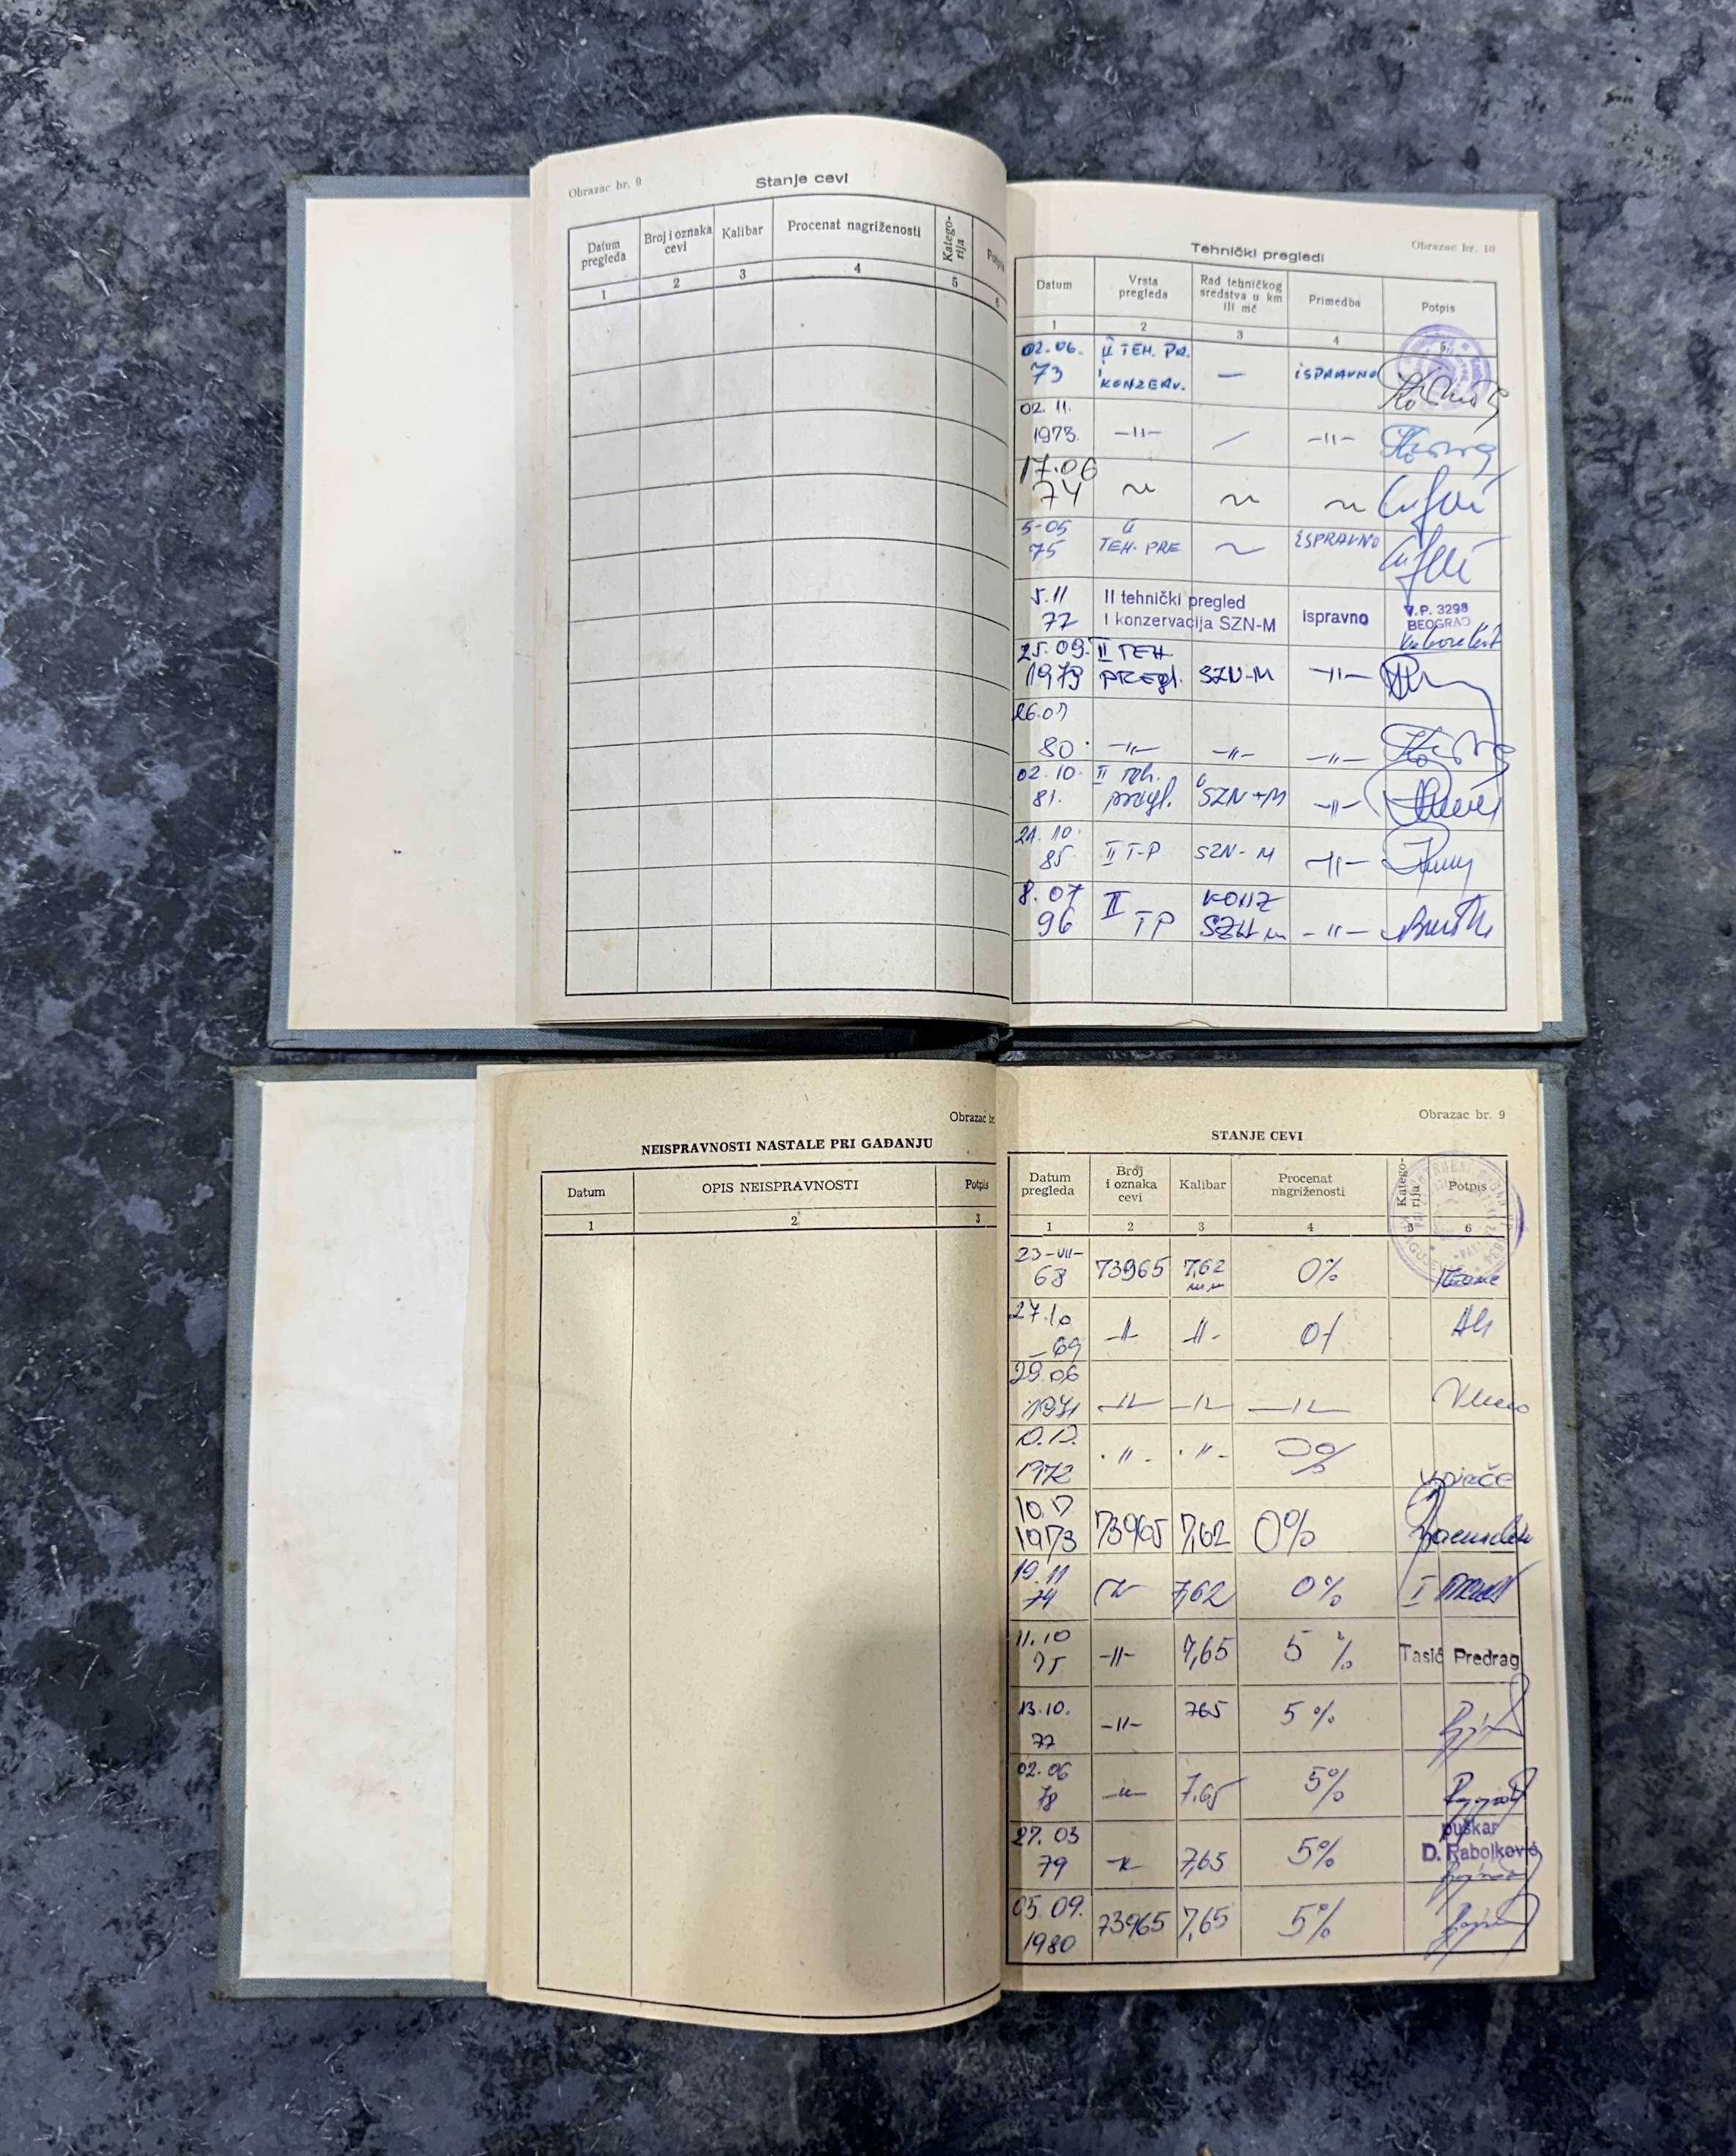 Obrazac br. 9
Stanje cevi
Datum pregleda
Broj i oznaka cevi
Kalibar
Procenat nagriženosti
Katego-rija
Potpis
1 2 3 4 5 6
Obrazac br. 10
Tehnički pregledi
Datum
Vrsta pregleda
Rad tehničkog sredstva u km ili mč
Primedba
Potpis
1 2 3 4 5
02.06. 73 II TEH. PR. i KONZERV. — ISPRAVNO
02. 11. 1973. —II— / —II—
17.06 74 ~ ~ ~
5-05 75 II TEH. PRE ~ ISPRAVNO
5.11 77 II tehnički pregled I konzervacija SZN-M ispravno V.P. 3298 BEOGRAD
25.09. 1979 II TEH PREGL. SZN-M —II—
26.09 80. —II— —II— —II—
02.10. 81. II teh. pregl. SZN-M —II—
24.10. 85. II T-P SZN-M —II—
8.07 96 II TP KONZ SZN m —II—
Obrazac br.
NEISPRAVNOSTI NASTALE PRI GAĐANJU
Datum
OPIS NEISPRAVNOSTI
Potpis
1 2 3
Obrazac br. 9
STANJE CEVI
Datum pregleda
Broj i oznaka cevi
Kalibar
Procenat nagriženosti
Katego-rija
Potpis
1 2 3 4 5 6
23-VII-68 73965 7,62 mm 0%
27.10 69 —II— —II—
29.06 1971 —II— —II— —II—
1972 —II— —II— 0%
1973 73965 7,62 0%
19.11 74 7,62 0% I
11.10 75 —II— 7,65 5 % Tasić Predrag
13.10. 77 —II— 765 5%
02.06 78 —II— 7.65 5%
27.03 79 —II— 7,65 5% puškar D. Rabojković
05.09. 1980 73965 7,65 5%